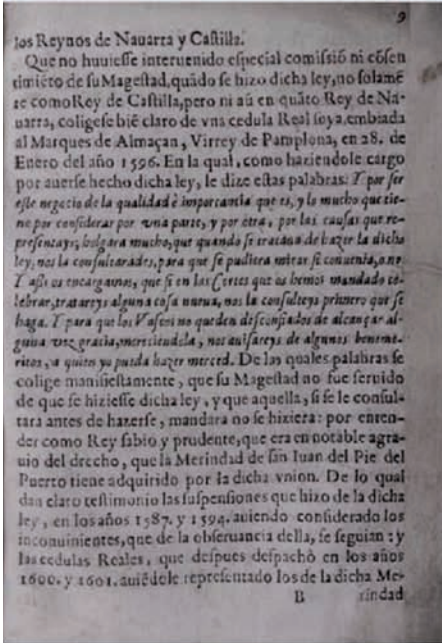 9
los Reynos de Nauarra y Castilla.
Que no huuiesse interuenido especial comissiõ ni cõsen
timiẽto de su Magestad, quãdo se hizo dicha ley, no solamẽ
te como Rey de Castilla, pero ni aũ en quãto Rey de Na-
uarra, coligese biẽ claro de vna cedula Real suya, embiada
al Marques de Almaçan, Virrey de Pamplona, en 28. de
Enero del año 1596. En la qual, como haziendole cargo
por auerse hecho dicha ley, le dize estas palabras: Y por ser
este negocio de la qualidad è importancia que es, y lo mucho que tie-
ne por considerar por vna parte, y por otra, por las causas que re-
presentays; holgara mucho, que quando se tratano de hazer la dicha
ley, nos la consultarades, para que se pudiera mirar si conuenia, o no.
Y assi os encargamos, que si en las Cortes que os hemos mandado ce-
lebrar, tratareys alguna cosa nueua, nos la consulteys primero que se
haga. Y para que los Vascos no queden desconfiados de alcançar al-
guna vez gracia, mereciendola, nos auisareys de algunos beneme-
ritos, a quien yo pueda hazer merced. De las quales palabras se
colige manifiestamente, que su Magestad no fue seruido
de que se hiziesse dicha ley, y que aquella, si se le consul-
tara antes de hazerse, mandara no se hiziera: por enten-
der como Rey sabio y prudente, que era en notable agra-
uio del drecho, que la Merindad de san Iuan del Pie del
Puerto tiene adquirido por la dicha vnion. De lo qual
dan claro testimonio las suspensiones que hizo de la dicha
ley, en los años 1587. y 1594. auiendo considerado los
inconuinientes, que de la obseruancia della, se seguian: y
las cedulas Reales, que despues despachò en los años
1600. y 1601. auiẽdole representado los de la dicha Me-
B rindad